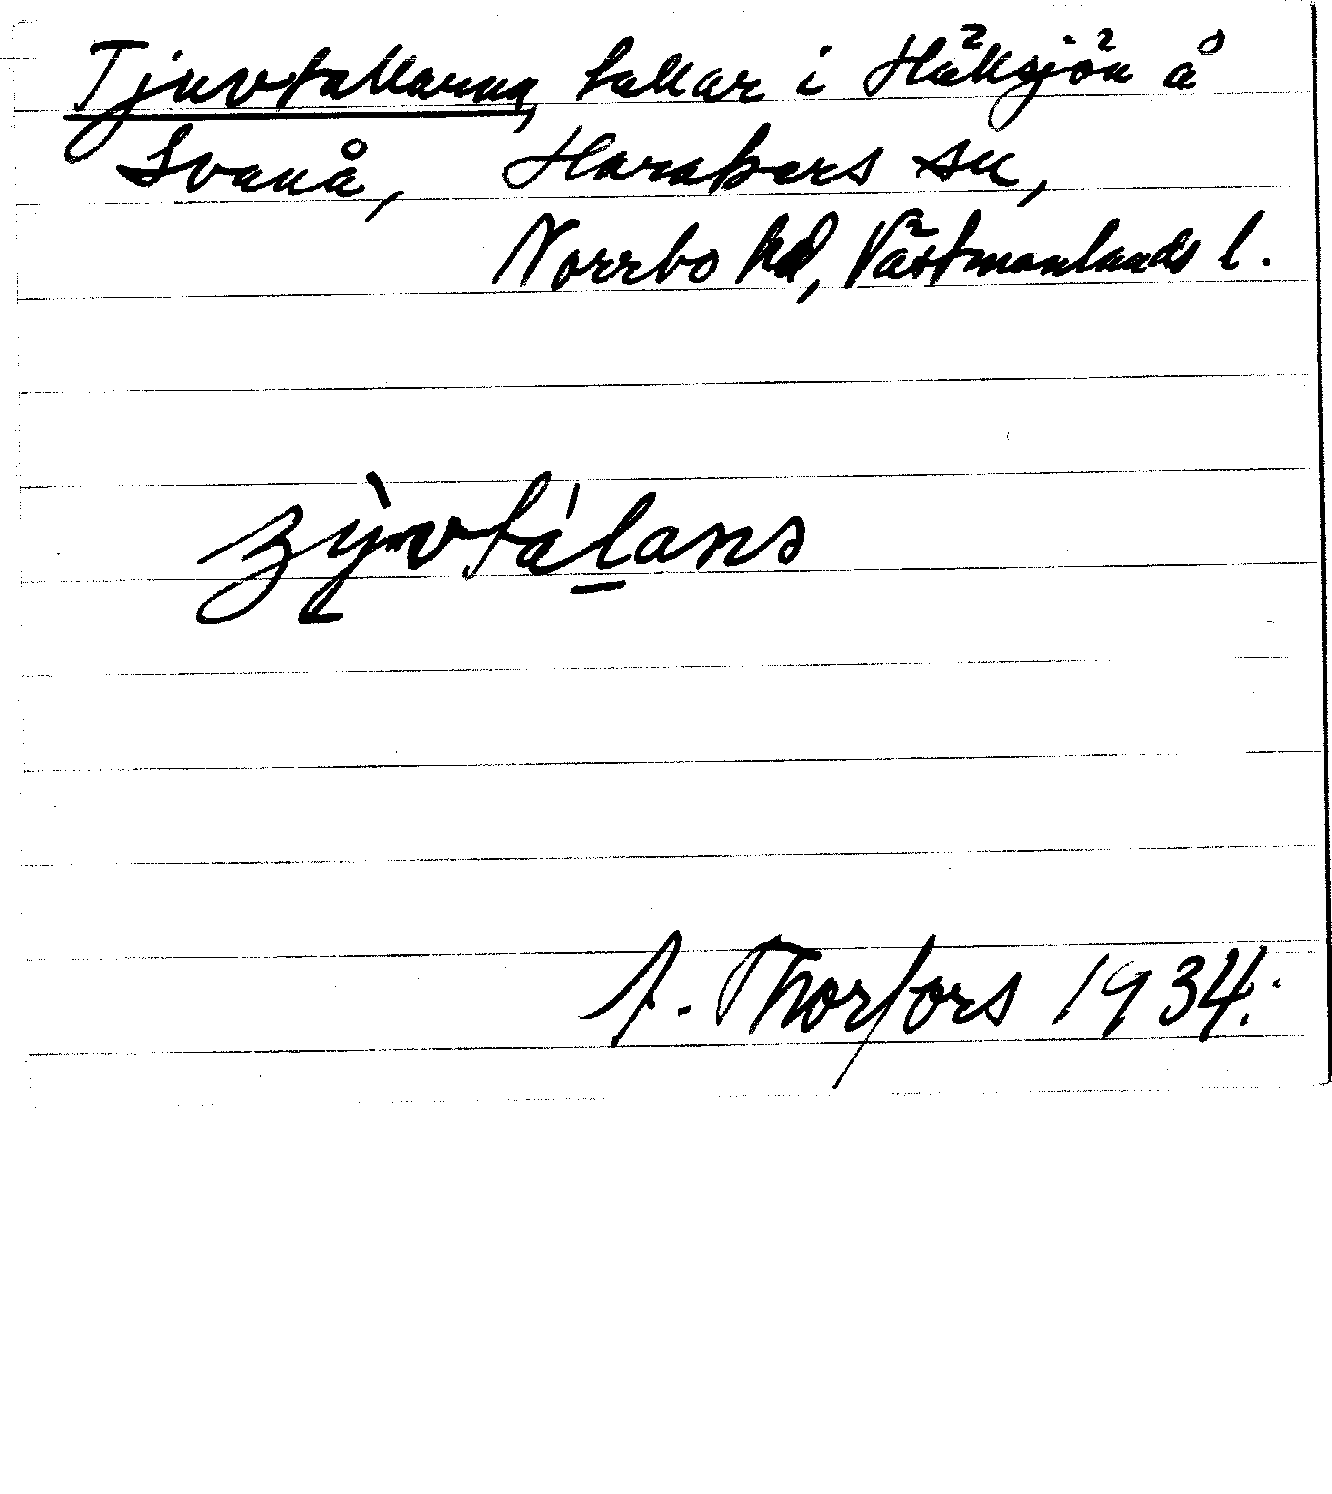 Tjuvtallarna, tallar i Hällsjön å
Svanå, Harakers sn,
Norrbo hd, Västmanlands l.
A. Thorfors 1934.